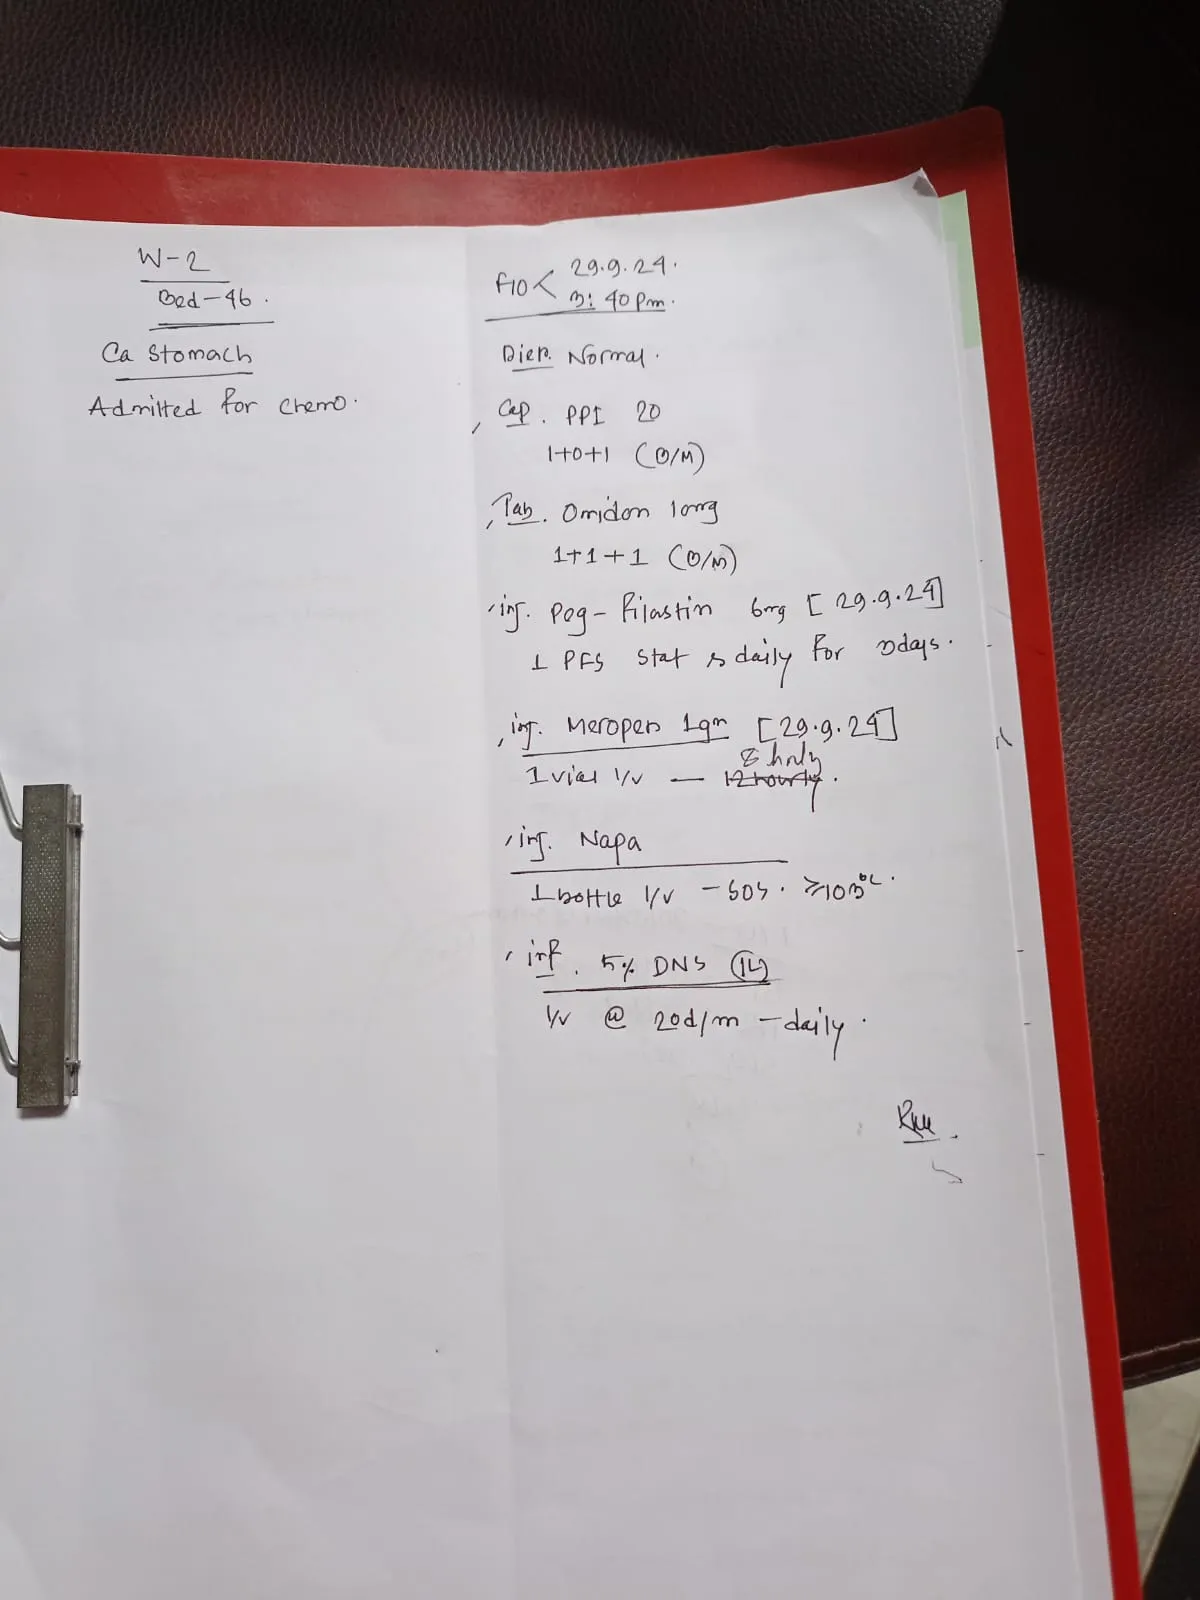 W-2
Bed-46.
Ca Stomach
Admitted for chemo.
F/O < 29.9.24.
3:40 pm.
Diet. Normal.
Cap. PPI 20
1+0+1 (O/M)
Tab. Omidon 10mg
1+1+1 (O/M)
inj. Peg-Filastin 6mg [29.9.24]
1 PFS stat & daily for 3days.
inj. Meropen 1gm [29.9.24]
8 hrly
1 vial I/V — 12 hourly.
inj. Napa
1 bottle I/V - SOS. ≥103°C.
inf. 5% DNS (1L)
I/V @ 20d/m - daily.